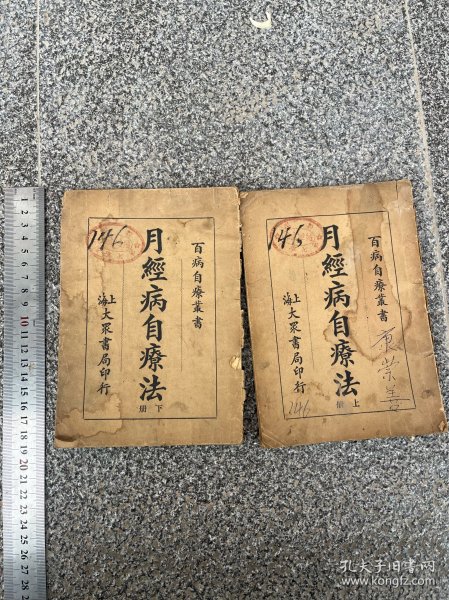 百病自療叢書
月經病自療法
下册
上海大眾書局印行
146
百病自療叢書
月經病自療法
上册
上海大眾書局印行
146
146
1 2 3 4 5 6 7 8 9 10 11 12 13 14 15 16 17 18 19 20 21 22 23 24 25 26 27 28
孔夫子旧书网
www.kongfz.com